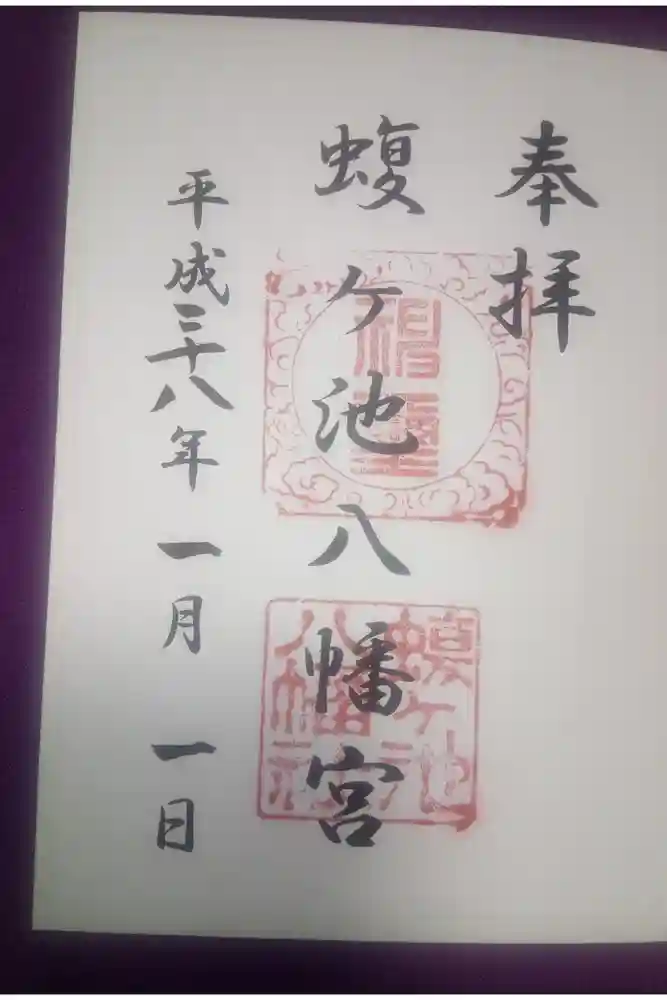 奉拝
蝮ヶ池八幡宮
平成二十八年一月一日
蝮ヶ池
八幡